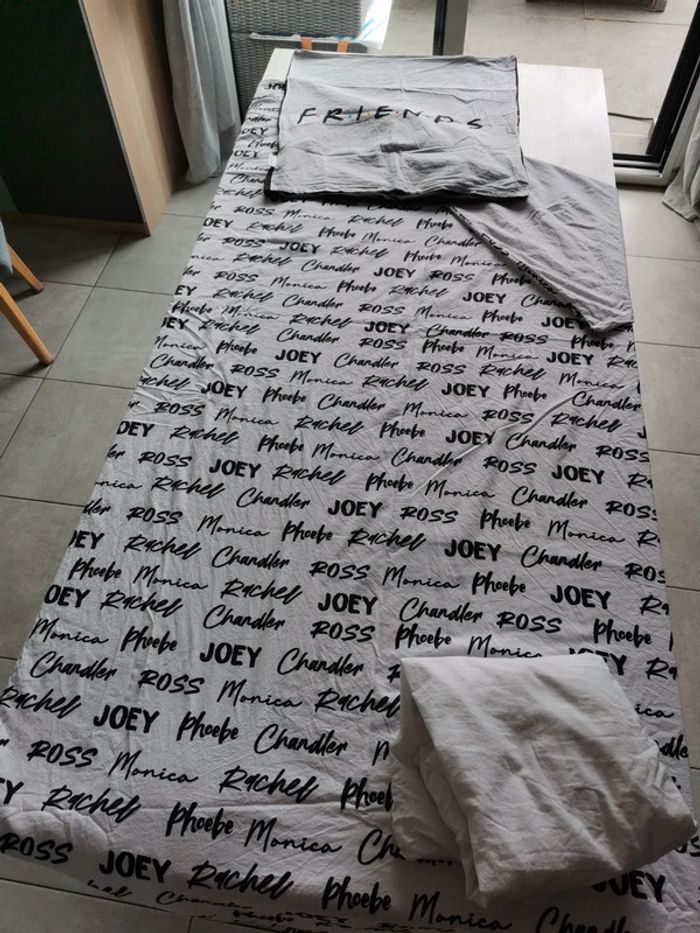 JOEY
FRIENDS
JOEY
Rachel Phoebe
ROSS Monica Rachel Phoebe
Rachel JOEY Phoebe Monica Chandler
ROSS JOEY Rachel Phoebe Monica
Rachel Chandler JOEY ROSS Phoebe
ROSS Monica Phoebe Rachel JOEY
Rachel Chandler ROSS Monica Phoebe
Phoebe Monica Rachel JOEY Chandler ROSS
Rachel Chandler ROSS Phoebe Monica JOEY
Phoebe JOEY Chandler ROSS Rachel Monica
Chandler ROSS Monica Rachel JOEY Phoebe Chandler
JOEY Phoebe Chandler Monica ROSS Rachel
ROSS Monica Rachel Phoebe JOEY Chandler
Rachel Phoebe Monica Chandler ROSS JOEY
ROSS JOEY Rachel Phoebe Monica Chandler
Rachel Chandler JOEY ROSS Phoebe Monica
ROSS Monica Phoebe Rachel JOEY Chandler
Rachel Chandler ROSS Monica Phoebe JOEY
Phoebe Monica Rachel JOEY Chandler ROSS
Rachel Chandler ROSS Phoebe Monica
Monica Phoebe JOEY Chandler
Chandler ROSS Monica Rachel
Rachel JOEY Phoebe Chandler
ROSS Monica Rachel Phoebe
Rachel Phoebe Monica
ROSS JOEY Rachel Phoebe Monica JOEY
Chandler Phoebe